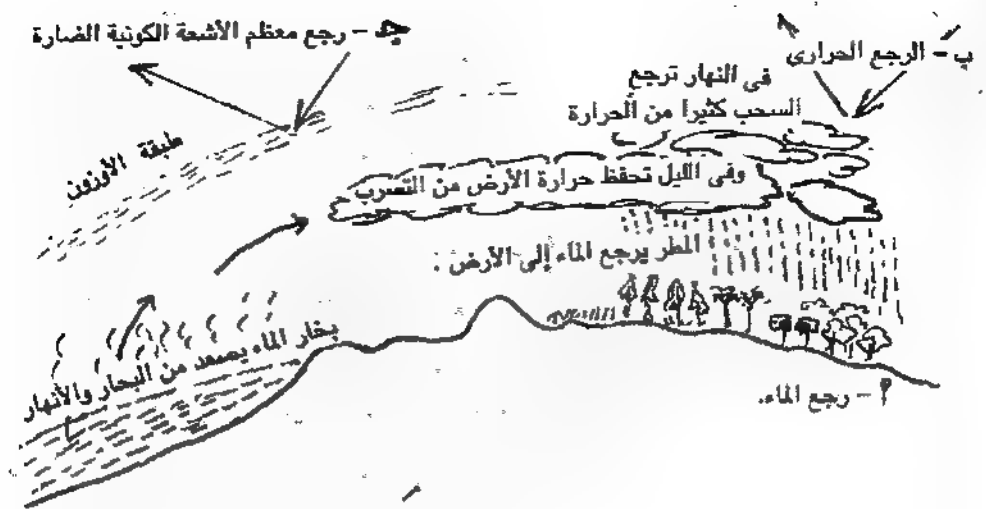 جـ - رجع معظم الأشعة الكونية الضارة
ب - الرجع الحرارى
فى النهار ترجع
السحب كثيرا من الحرارة
طبقة الأوزون
وفى الليل تحفظ حرارة الأرض من التسرب
المطر يرجع الماء إلى الأرض :
بخار الماء يصعد من البحار والأنهار
أ - رجع الماء.